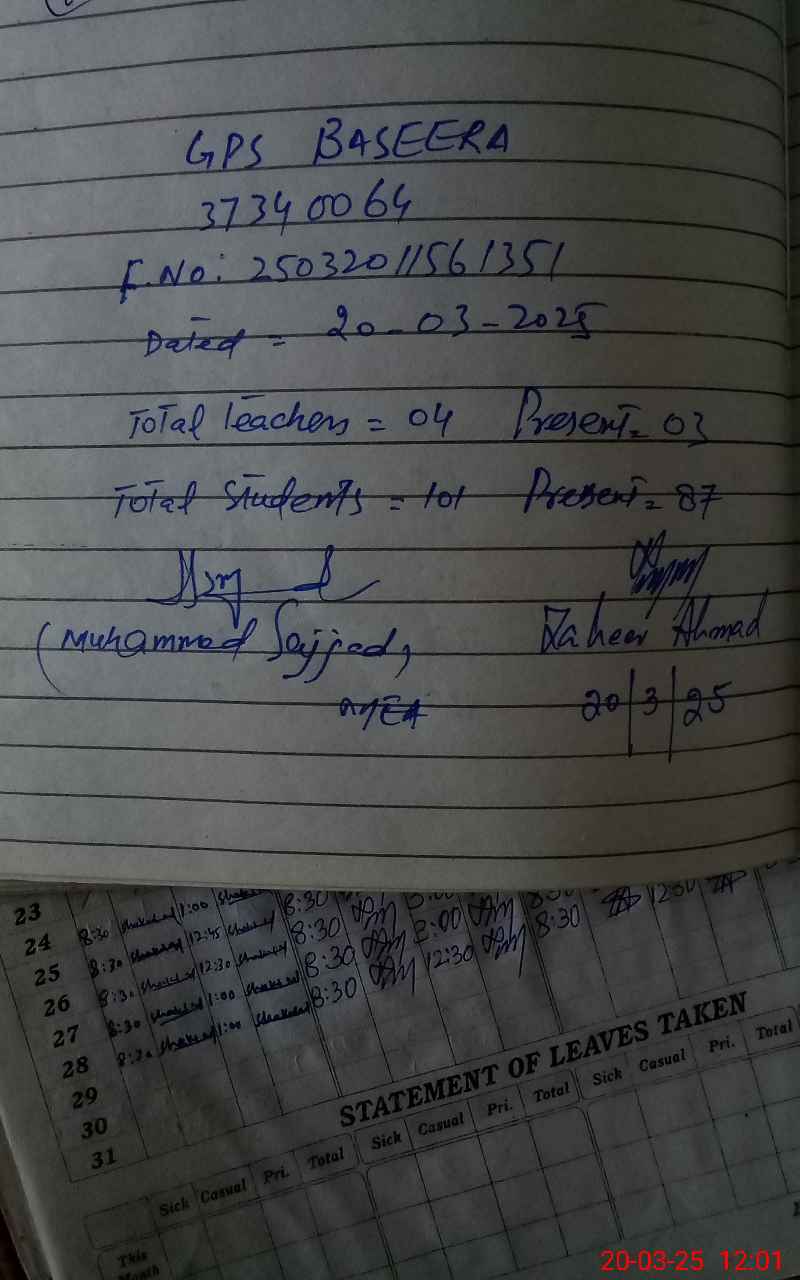 GPS BASEERA
37340064
F.No: 25032011561351
Dated = 20-03-2025
Total Teachers = 04 Present = 03
Total Students = 101 Present = 87
(Muhammad Sajjad)
Zaheer Ahmad
20/3/25
23
24 8:30 1:00 8:30
25 8:30 12:45 8:30 2:00 8:30 12:30
26 8:30 12:30 8:30 12:30
27 8:30 1:00 8:30
28 8:30 1:00
29
30
31
STATEMENT OF LEAVES TAKEN
Sick Casual Pri. Total Sick Casual Pri. Total Sick Casual Pri. Total
This
Month
20-03-25 12:01